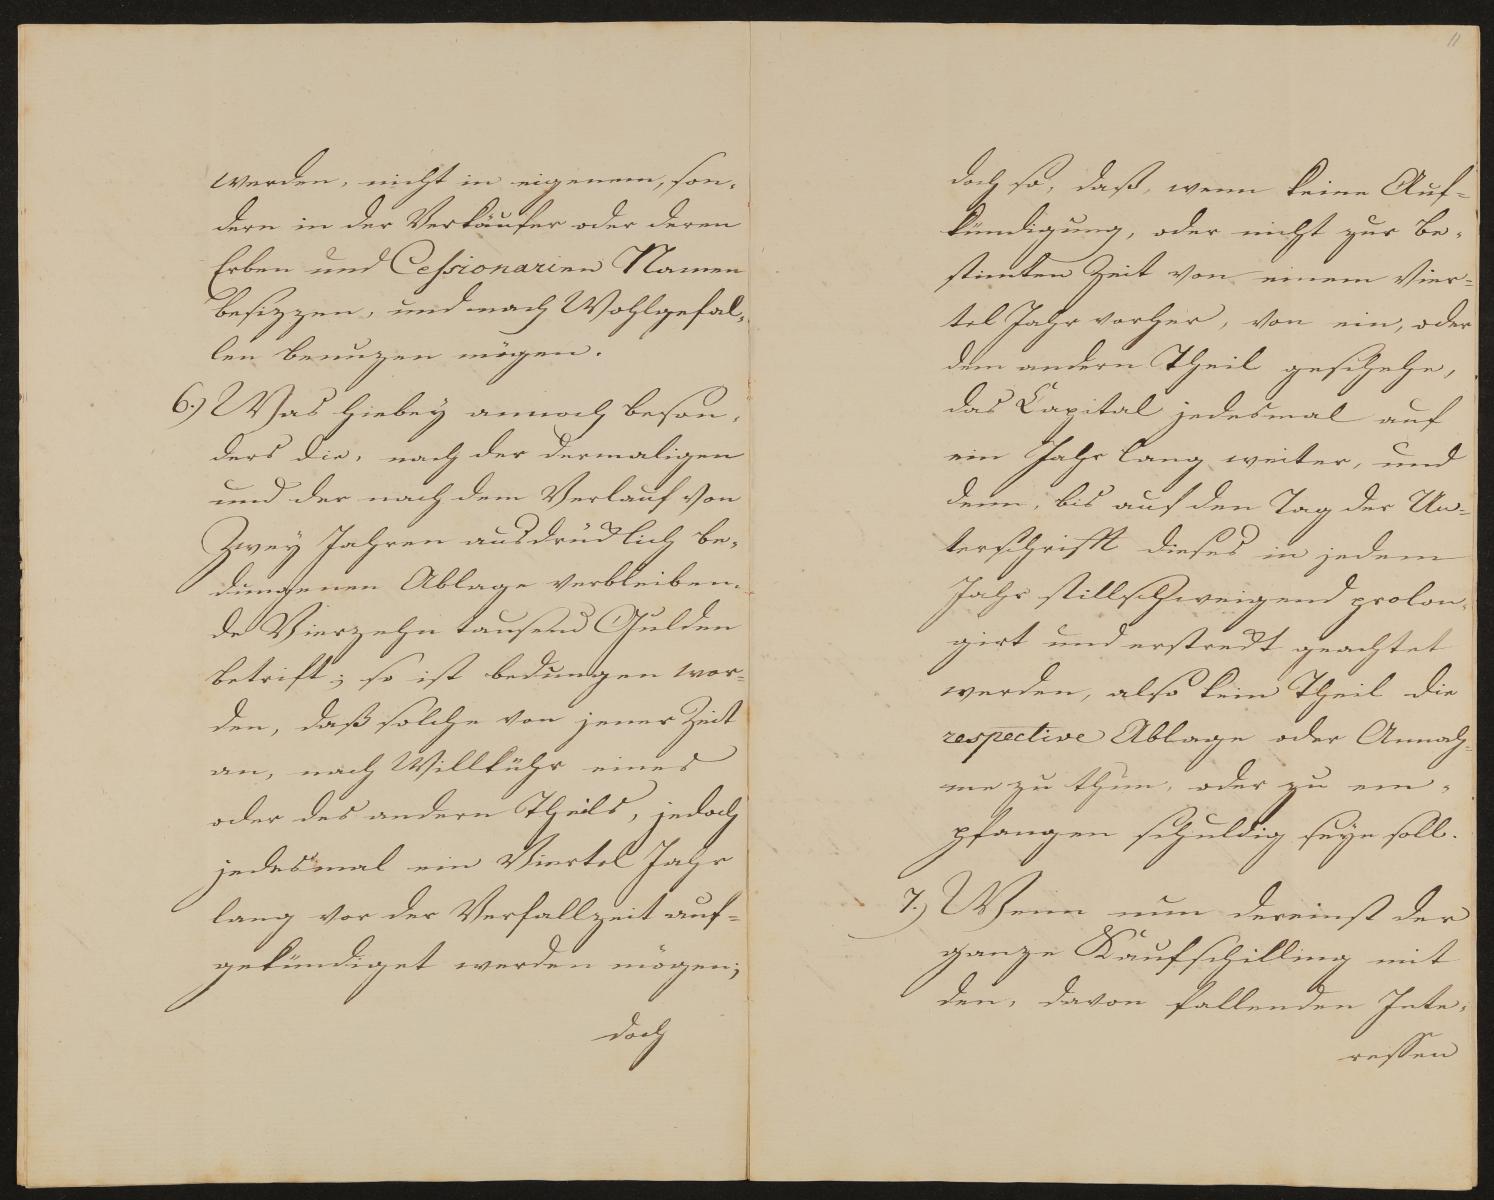 werden, nicht in eigenem, son-
dern in der Verkäufer oder deren
Erben und Cessionarien Namen
besizzen, und nach Wohlgefal-
len benuzen mögen.
6.) Was hiebey annoch beson-
ders die, nach der dermaligen
und der nach dem Verlauf von
Zwey Jahren ausdrücklich be-
dungenen Ablage verbleiben-
de Vierzehn tausend Gulden
betrift; so ist bedungen wor-
den, daß solche von jener Zeit
an, nach Willkühr eines
oder des andern Theils, jedoch
jedesmal ein Viertel Jahr
lang vor der Verfallzeit auf-
gekündiget werden mögen;
doch
11
doch so, daß, wenn keine Auf-
kündigung, oder nicht zur be-
stimten Zeit von einem Vier-
tel Jahr vorher, von ein, oder
dem andern Theil geschehe,
das Capital jedesmal auf
ein Jahr lang weiter, und
denn, bis auf den Tag der Un-
terschrifft dieses in jedem
Jahr stillschweigend prolon-
girt und erstreckt geachtet
werden, also kein Theil die
respective Ablage oder Annah-
me zu thun, oder zu em-
pfangen schuldig seye soll.
7.) Wenn nun dereinst der
ganze Kaufschilling mit
den, davon fallenden Inte-
ressen